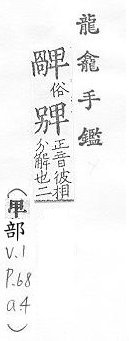 龍龕手鑑
俗
正音彼相
分解也二
(部
V.1
P.68
a4)